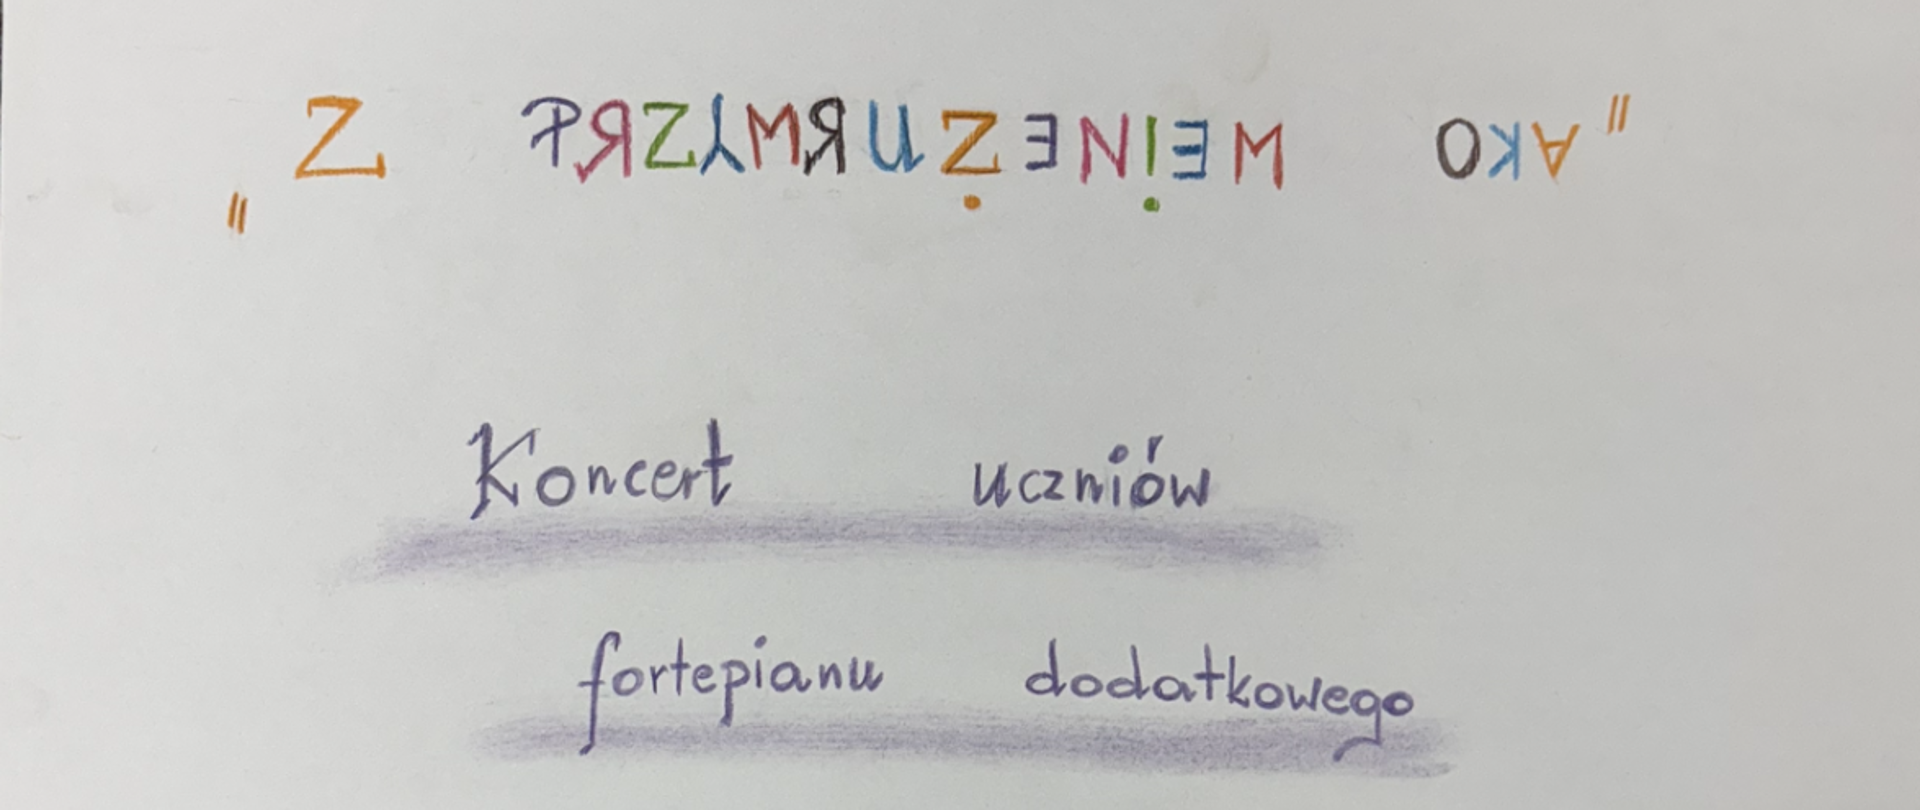 „Z PRZYMRUŻENIEM OKA”
Koncert uczniów
fortepianu dodatkowego